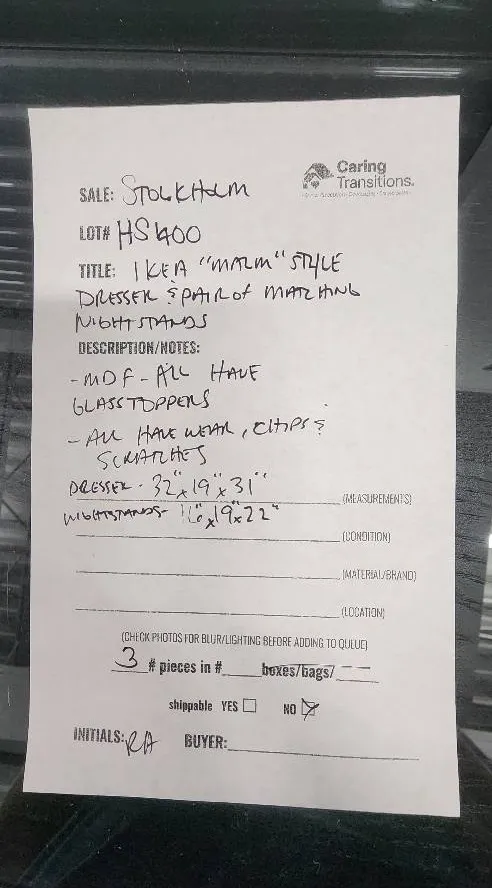 Caring
Transitions.
SALE: STOLKHOLM
LOT# HS400
TITLE: IKEA "MALM" STYLE
DRESSER & PAIR of MATCHING
NIGHTSTANDS
DESCRIPTION/NOTES:
- MDF - ALL HAVE
GLASS TOPPERS
- ALL HAVE WEAR, CHIPS &
SCRATCHES
DRESSER - 32" x 19" x 31"
(MEASUREMENTS)
NIGHTSTANDS - 16" x 19" x 22"
(CONDITION)
(MATERIAL/BRAND)
(LOCATION)
(CHECK PHOTOS FOR BLUR/LIGHTING BEFORE ADDING TO QUEUE)
3 # pieces in #____ boxes/bags/____
shippable YES ☐ NO ☒
INITIALS: RA BUYER: